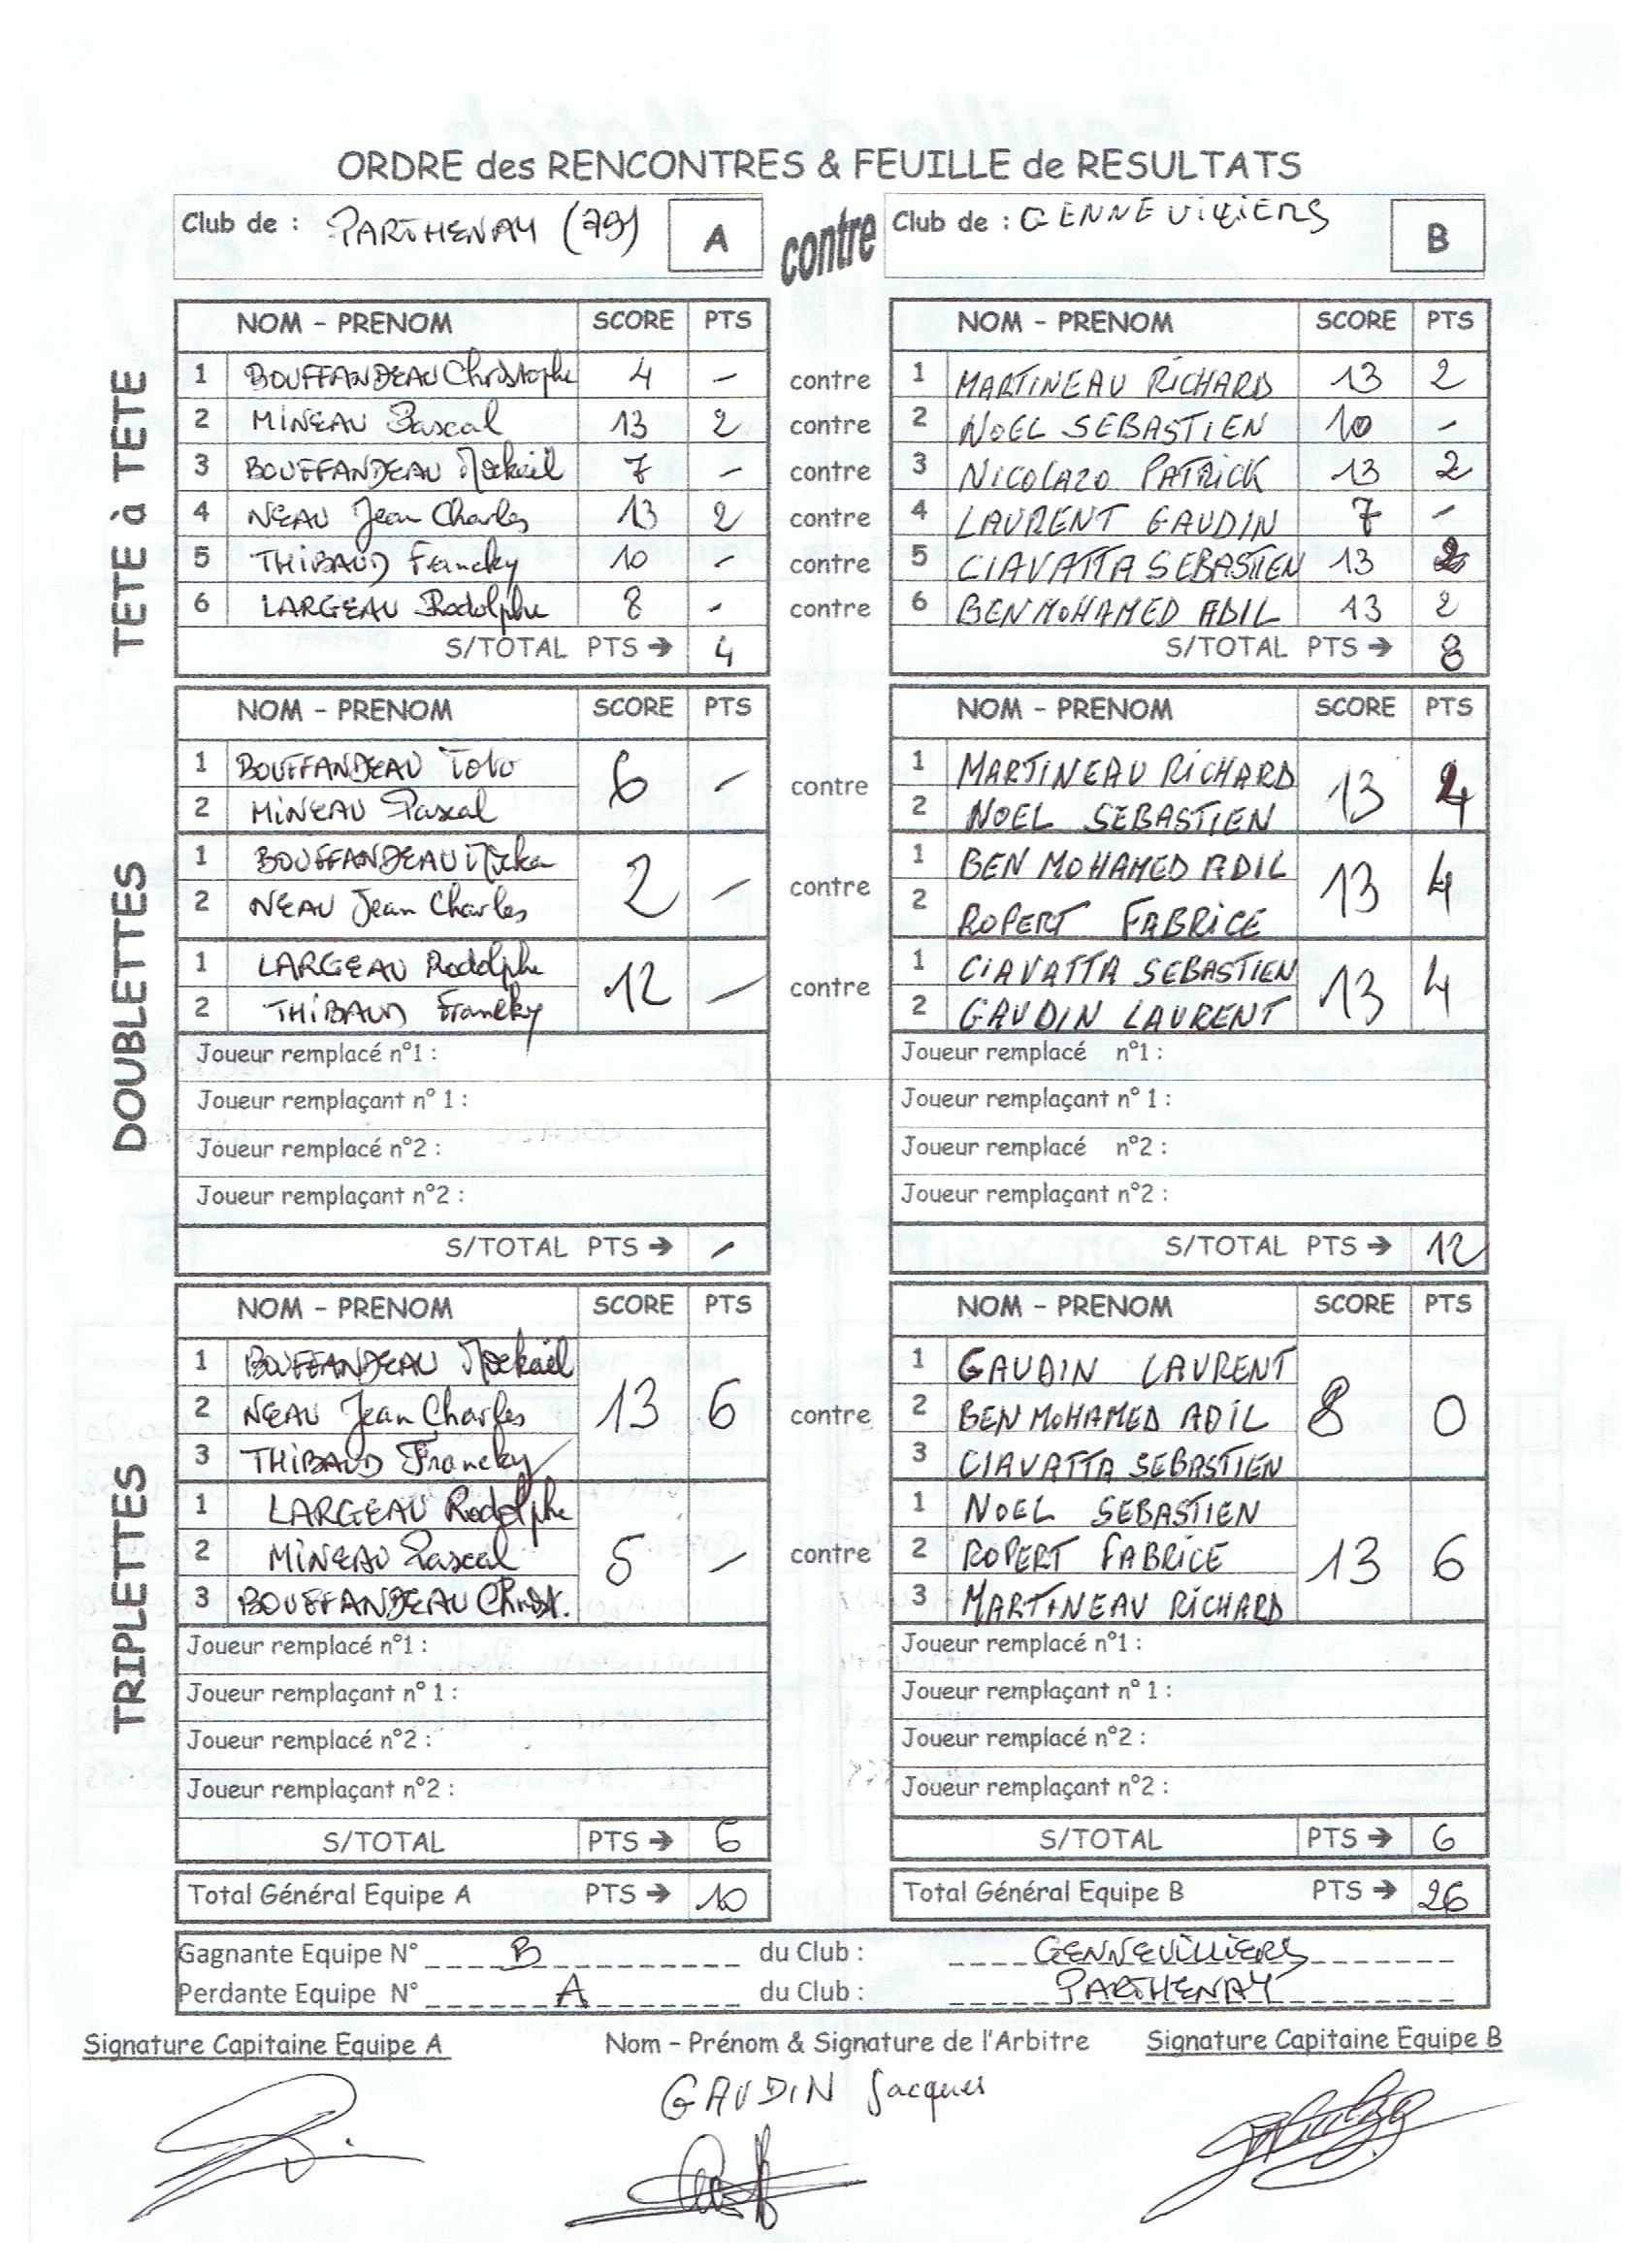 ORDRE des RENCONTRES & FEUILLE de RESULTATS
Club de : PARTHENAY (79) A contre Club de : GENNEVILLIERS B
TETE à TETE
NOM - PRENOM SCORE PTS NOM - PRENOM SCORE PTS
1 BOUFFANDEAU Christophe 4 - contre 1 MARTINEAU RICHARD 13 2
2 MINEAU Pascal 13 2 contre 2 NOEL SEBASTIEN 10 -
3 BOUFFANDEAU Mickaël 7 - contre 3 NICOLAZO PATRICK 13 2
4 NEAU Jean Charles 13 2 contre 4 LAURENT GAUDIN 7 -
5 THIBAUD Francky 10 - contre 5 CIAVATTA SEBASTIEN 13 2
6 LARGEAU Rodolphe 8 - contre 6 BEN MOHAMED ADIL 13 2
S/TOTAL PTS → 4 S/TOTAL PTS → 8
DOUBLETTES
NOM - PRENOM SCORE PTS NOM - PRENOM SCORE PTS
1 BOUFFANDEAU Toto 6 - contre 1 MARTINEAU RICHARD 13 4
2 MINEAU Pascal 2 NOEL SEBASTIEN
1 BOUFFANDEAU Micka 2 - contre 1 BEN MOHAMED ADIL 13 4
2 NEAU Jean Charles 2 ROPERT FABRICE
1 LARGEAU Rodolphe 12 - contre 1 CIAVATTA SEBASTIEN 13 4
2 THIBAUD Francky 2 GAUDIN LAURENT
Joueur remplacé n°1 : Joueur remplacé n°1 :
Joueur remplaçant n° 1 : Joueur remplaçant n° 1 :
Joueur remplacé n°2 : Joueur remplacé n°2 :
Joueur remplaçant n°2 : Joueur remplaçant n°2 :
S/TOTAL PTS → - S/TOTAL PTS → 12
TRIPLETTES
NOM - PRENOM SCORE PTS NOM - PRENOM SCORE PTS
1 BOUFFANDEAU Mickaël 1 GAUDIN LAURENT
2 NEAU Jean Charles 13 6 contre 2 BEN MOHAMED ADIL 8 0
3 THIBAUD Francky 3 CIAVATTA SEBASTIEN
1 LARGEAU Rodolphe 1 NOEL SEBASTIEN
2 MINEAU Pascal 5 - contre 2 ROPERT FABRICE 13 6
3 BOUFFANDEAU Christ. 3 MARTINEAU RICHARD
Joueur remplacé n°1 : Joueur remplacé n°1 :
Joueur remplaçant n° 1 : Joueur remplaçant n° 1 :
Joueur remplacé n°2 : Joueur remplacé n°2 :
Joueur remplaçant n°2 : Joueur remplaçant n°2 :
S/TOTAL PTS → 6 S/TOTAL PTS → 6
Total Général Equipe A PTS → 10 Total Général Equipe B PTS → 26
Gagnante Equipe N° B du Club : GENNEVILLIERS
Perdante Equipe N° A du Club : PARTHENAY
Signature Capitaine Equipe A Nom - Prénom & Signature de l'Arbitre Signature Capitaine Equipe B
GAUDIN Jacques